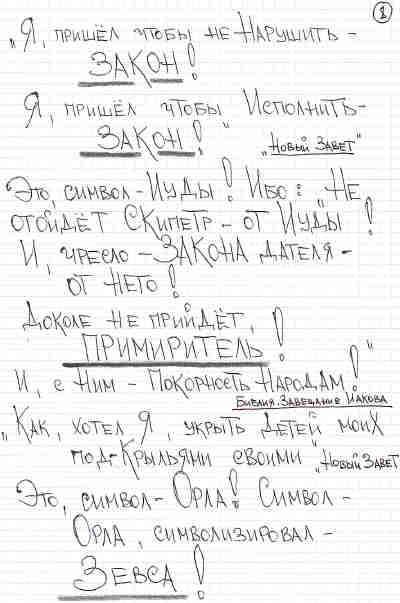 1
„Я, пришёл чтобы не Нарушить-
ЗАКОН!
Я, пришёл чтобы Исполнить-
ЗАКОН!"
„Новый Завет"
Это, символ-Иуды! Ибо: „Не
отойдёт Скипетр - от Иуды!
И, чресло - ЗАКОНА дателя -
от него!
Доколе не прийдёт,
ПРИМИРИТЕЛЬ!
И, с Ним - Покорность Народам!"
Библия. Завещание Иакова
„Как, хотел Я, укрыть детей моих
под-Крыльями своими"
„Новый Завет
Это, символ- Орла! Символ -
Орла, символизировал -
ЗЕВСА!